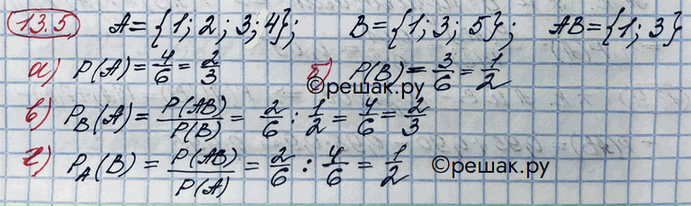 13.5 A={1; 2; 3; 4}; B={1; 3; 5}; AB={1; 3}
а) P(A)=4/6=2/3 б) P(B)=3/6=1/2
©решак.ру
в) P_B(A)=P(AB)/P(B)=2/6:1/2=4/6=2/3
г) P_A(B)=P(AB)/P(A)=2/6:4/6=1/2 ©решак.ру